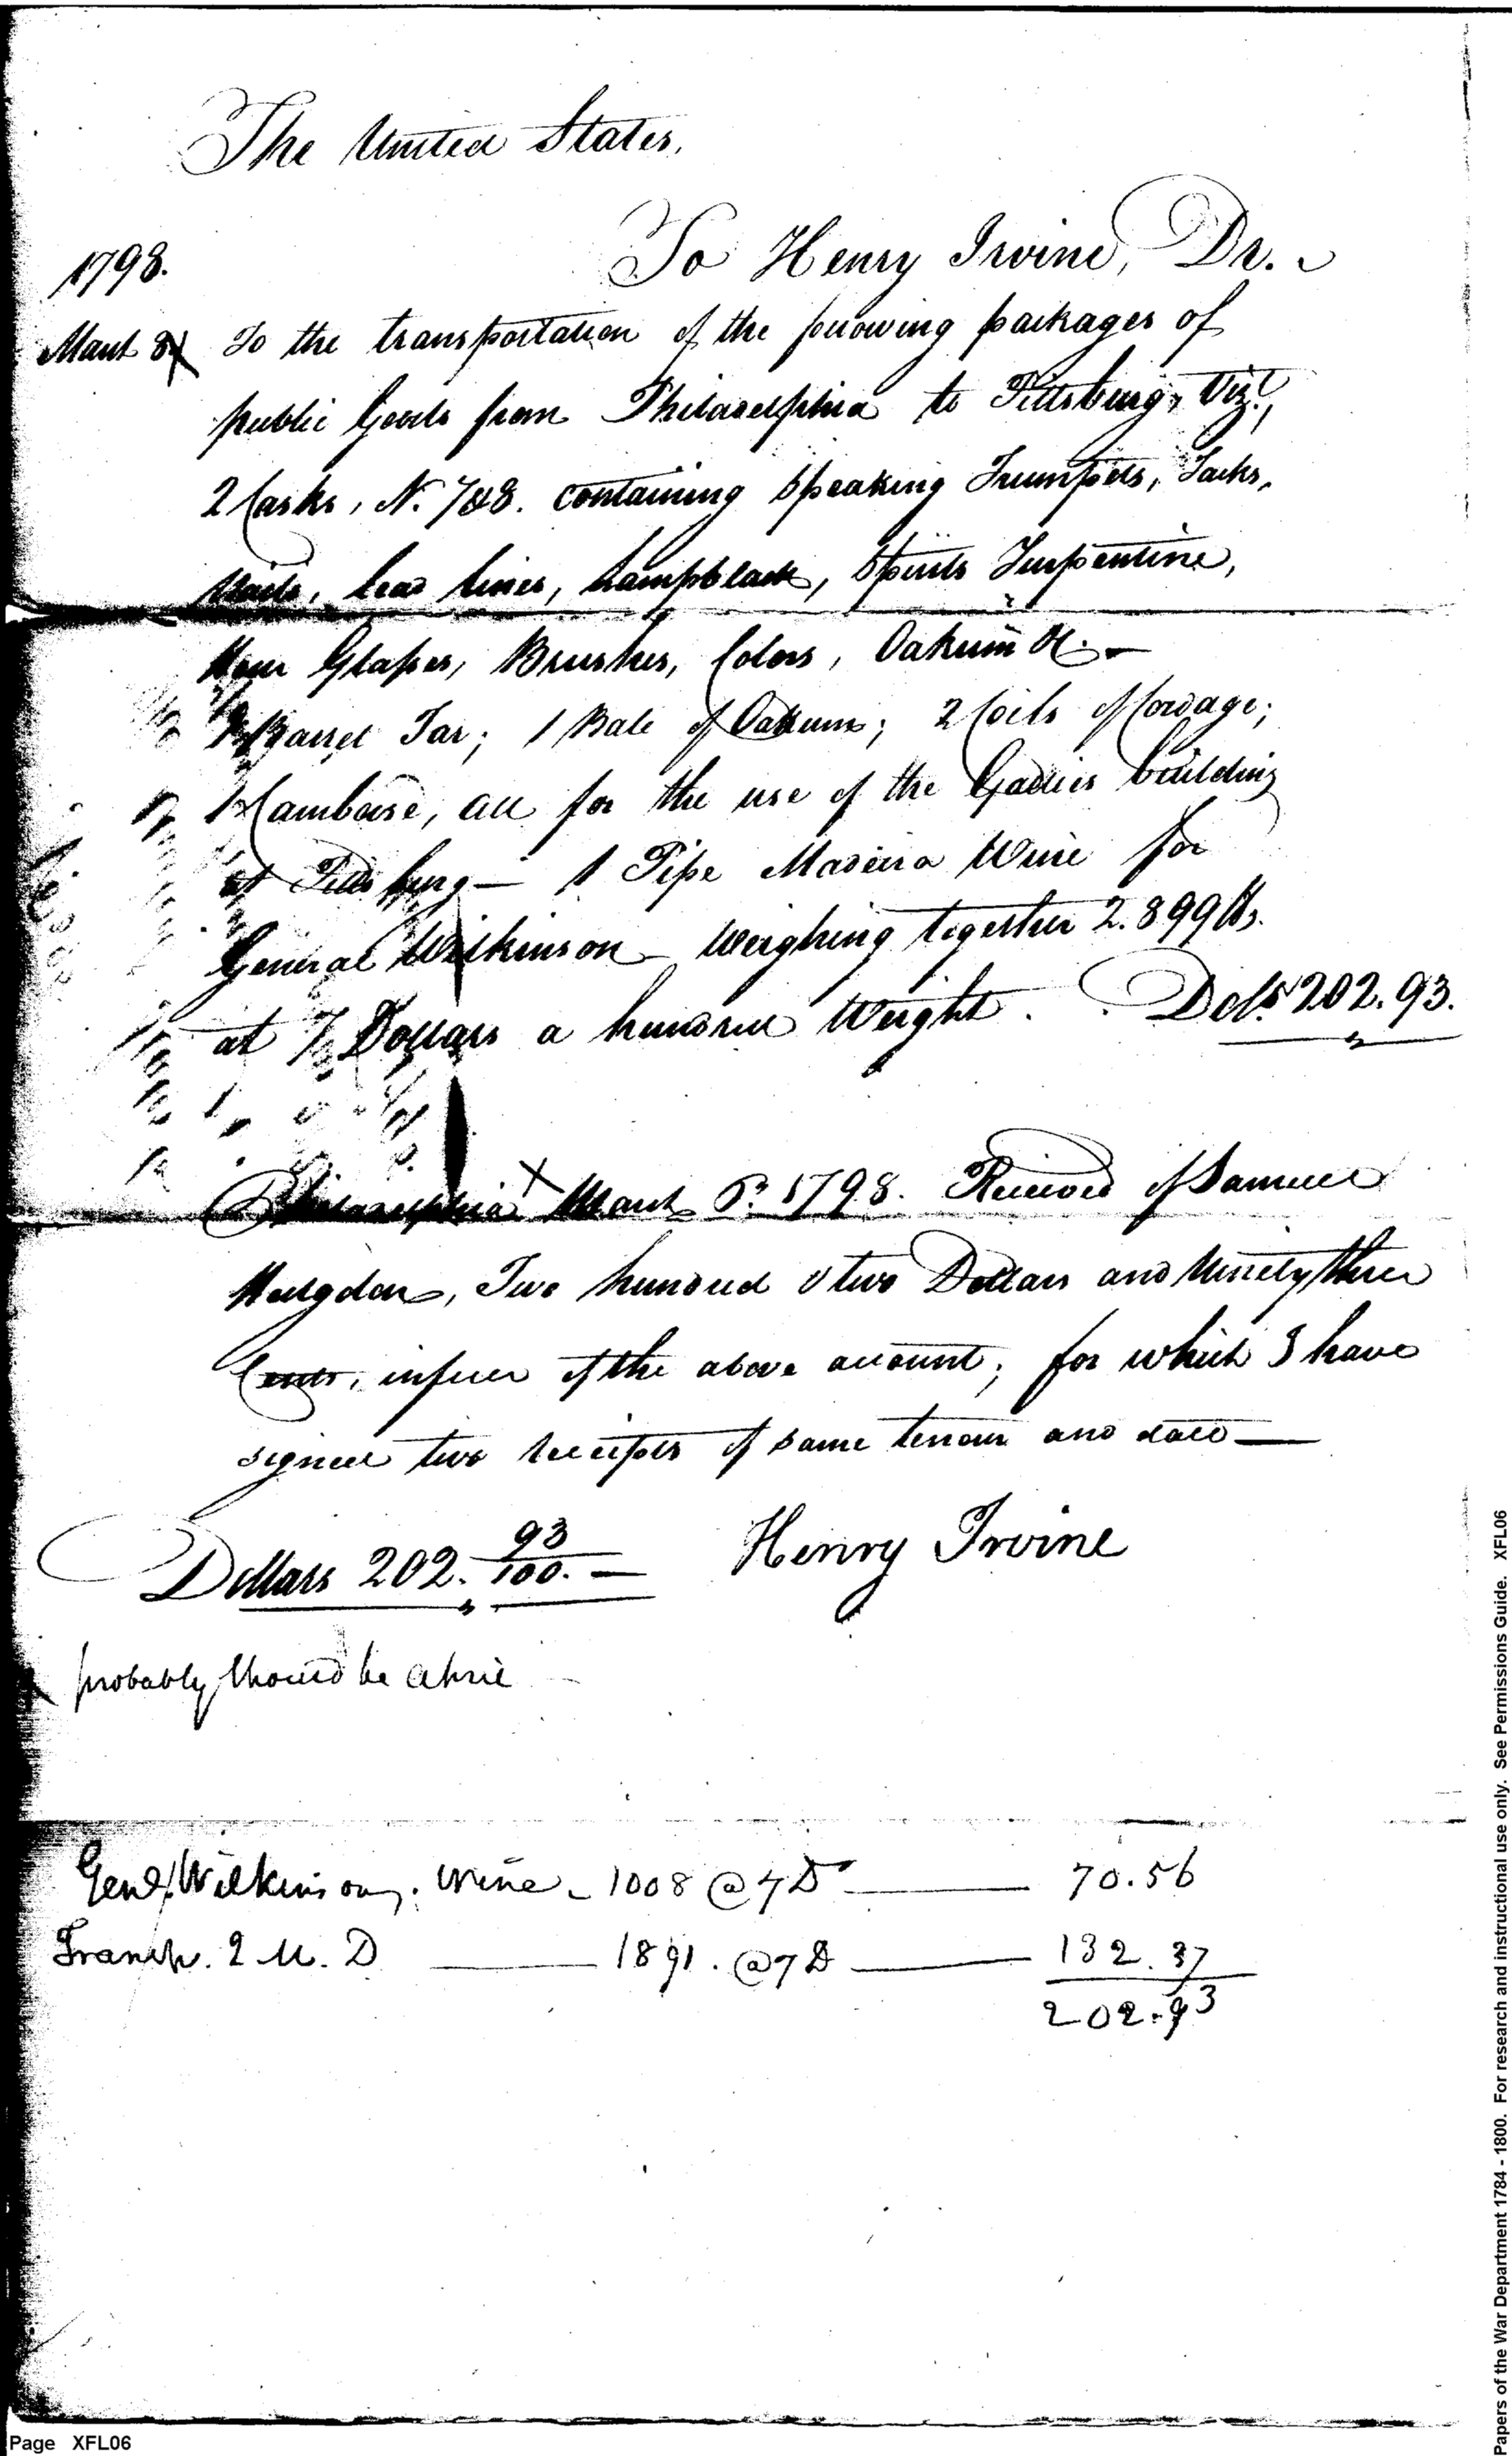 The United States,
To Henry Irvine, Dr.
1798.
March 8 X To the transportation of the following packages of
public Goods from Philadelphia to Pittsburg, Vizt,
2 Casks, N. 7&8. containing Speaking Trumpets, Tacks,
Nails, lead lines, Lampblack, Spirits Turpentine,
Hour Glasses, Brushes, Colors, Oakum &c. —
1 Barrel Tar; 1 Bale of Oakum; 2 Coils of Cordage;
1 Camboose, all for the use of the Gallies building
at Pittsburg — 1 Pipe Madeira Wine for
General Wilkinson — Weighing together 2.899 lbs.
at 7 Dollars a hundred Weight. Dols. 202.93.
Philadelphia X March 1798. Received of Samuel
Hodgdon, Two hundred & two Dollars and Ninety three
Cents, in full of the above account; for which I have
signed two receipts of same tenour and date —
Dollars 202. 93/100. — Henry Irvine
X probably should be April
Genl. Wilkinson, Wine — 1008 @ 7 D — 70.56
Transp. Q M. D — 1891. @ 7 D — 132.37
202.93
Page XFL06
Papers of the War Department 1784 - 1800. For research and instructional use only. See Permissions Guide. XFL06